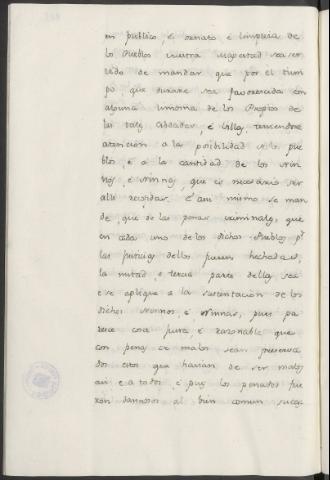 en publico, é ornato e limpieza de
los Pueblos vuestra Magestad sea ser
vido de mandar, que por el tiem
po, que durare sea favorecida con
alguna limosna de los Propios de
las tales Ciudades, é Villas, teniendose
atencion a la posibilidad de los pue
blos, é a la cantidad de los Nin
nos, é Ninnas, que es necesario ser
alli recogidas. E asi mismo se man
de, que de las penas criminales, que
en cada uno de los dichos Pueblos pr
las Justicias dellos fueren hechadas,
la mitad, o tercia parte dellas sea
e se aplique a la sustentacion de los
dichos Ninnos, é Ninnas, pues pa
rece cosa justa, é razonable que
con penas de malos sean preserva
dos estos que havian de ser malos
asi e a todos, é pues los penados fue
ron dannosos al bien comun su cas